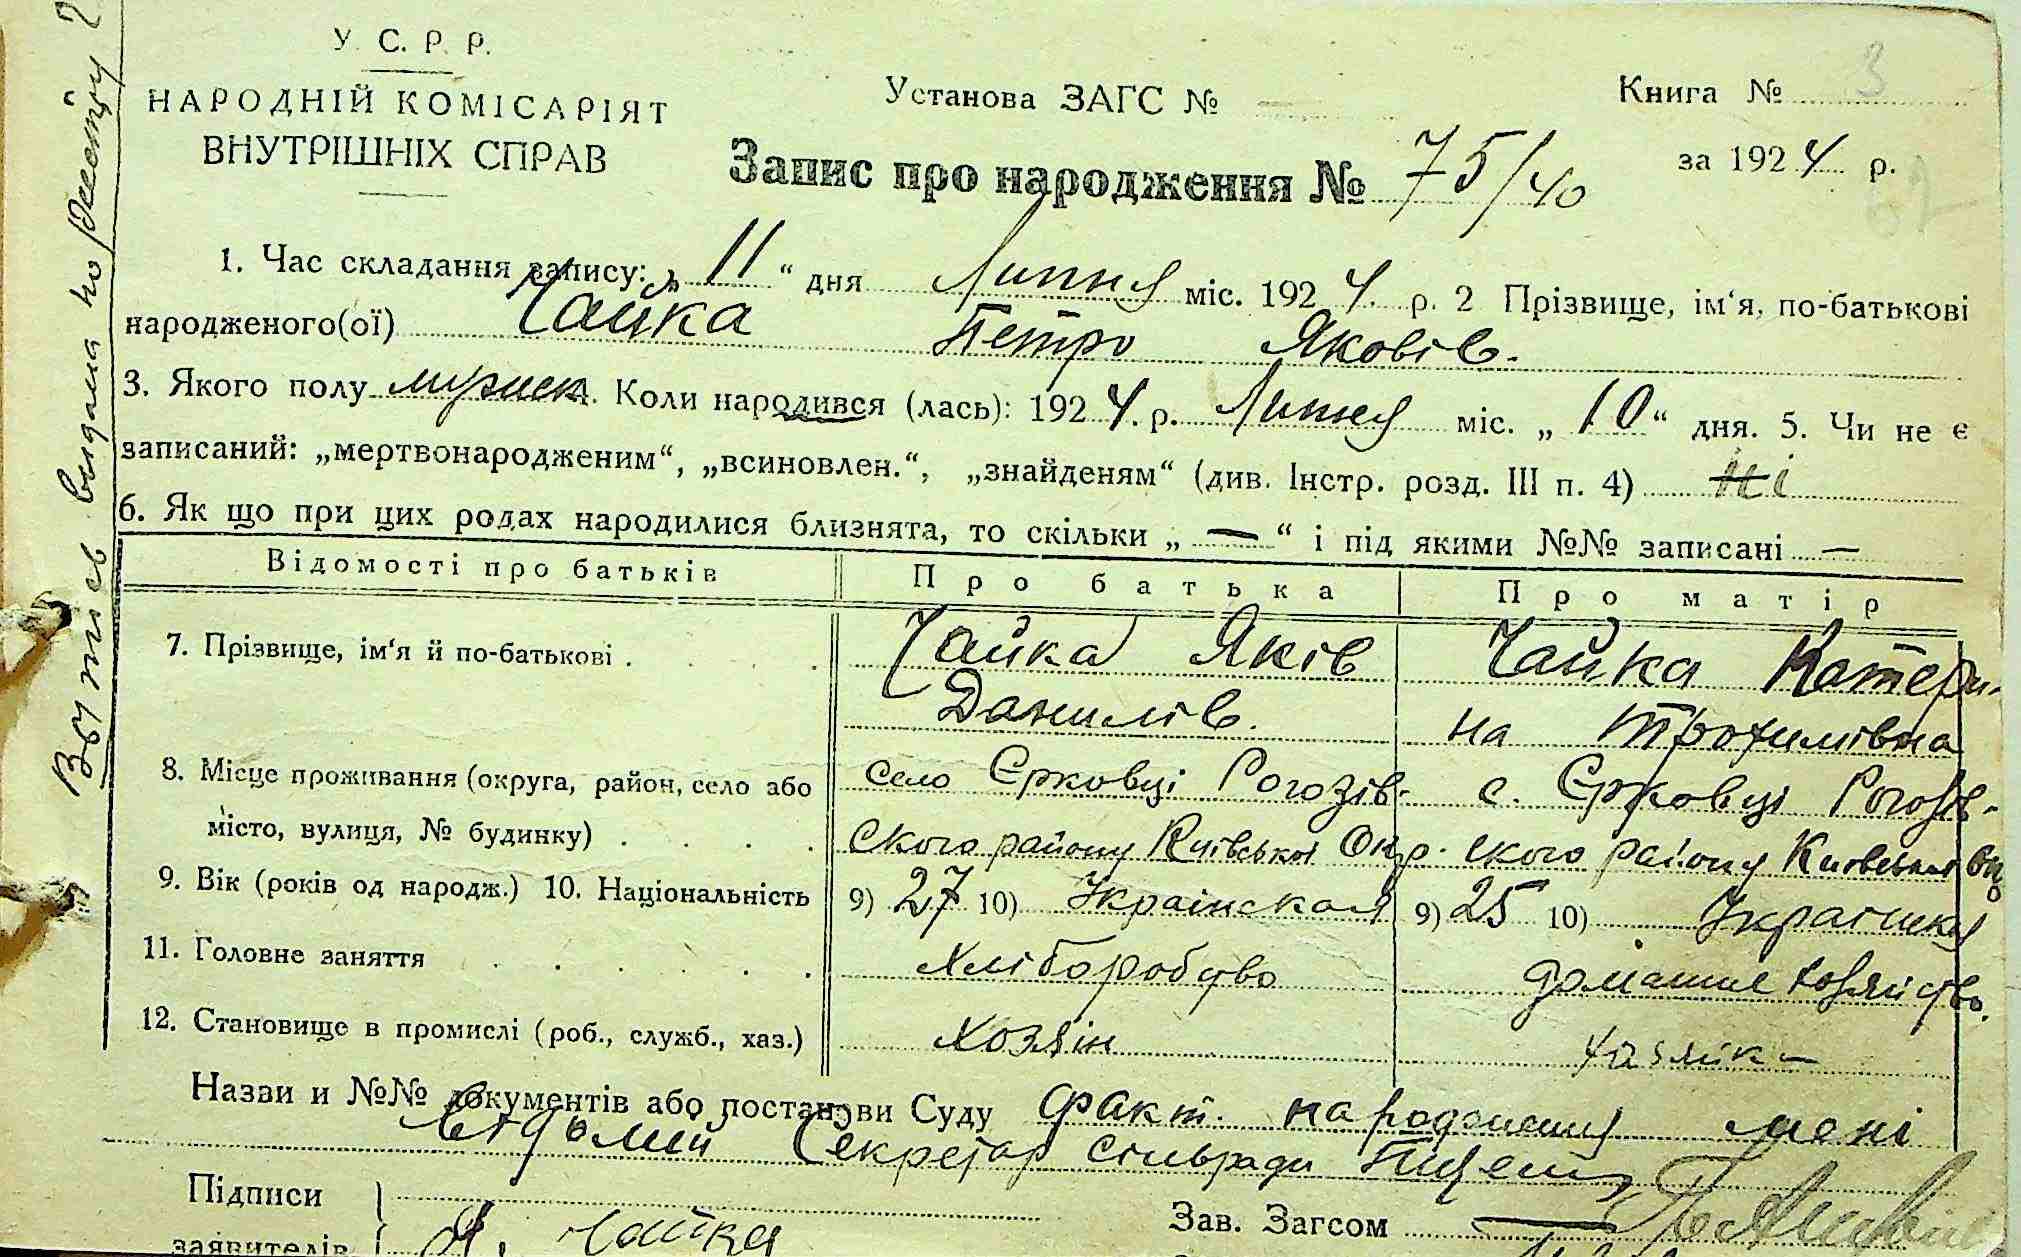 У. С. Р. Р.
НАРОДНІЙ КОМІСАРІЯТ
ВНУТРІШНІХ СПРАВ
Установа ЗАГС №
Книга № 3
Запис про народження № 75/40
за 1924 р.
1. Час складання запису: „ 11 “ дня Липня міс. 1924. р. 2 Прізвище, ім‘я, по-батькові
народженого(ої) Чайка Петро Яковів.
3. Якого полу мужеск. 4. Коли народився (лась): 1924. р. Липня міс. „ 10 “ дня. 5. Чи не є
записаний: „мертвонародженим“, „всиновлен.“, „знайденям“ (див. Інстр. розд. III п. 4) ні
6. Як що при цих родах народилися близнята, то скільки „ — “ і під якими №№ записані —
Відомості про батьків Про батька Про матір
7. Прізвище, ім‘я й по-батькові . Чайка Яків Чайка Катери-
Данилів. на Трохимівна
8. Місце проживання (округа, район, село або село Єрковці Рогозів- с. Єрковці Рогозів-
місто, вулиця, № будинку) . ского району Київської Окр. ского району Київської Окр
9. Вік (років од народж.) 10. Національність 9) 27 10) Українская 9) 25 10) Українка
11. Головне заняття Хліборобство домашне хозяйство.
12. Становище в промислі (роб., служб., хаз.) Хозяін хазяйка
Назви и №№ документів або постанови Суду Факт народження мені
відомий Секретар сільради
Підписи
заявителів Я. Чайка
Зав. Загсом
Выпись выдана по